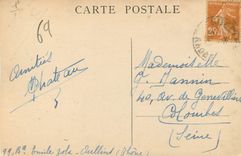 CARTE POSTALE
69
Amitiés
Mademoiselle
J. Jannin
40, Av. de Gennevilliers
Colombes
(Seine)
99, Bd Emile Zola - Oullins (Rhône)